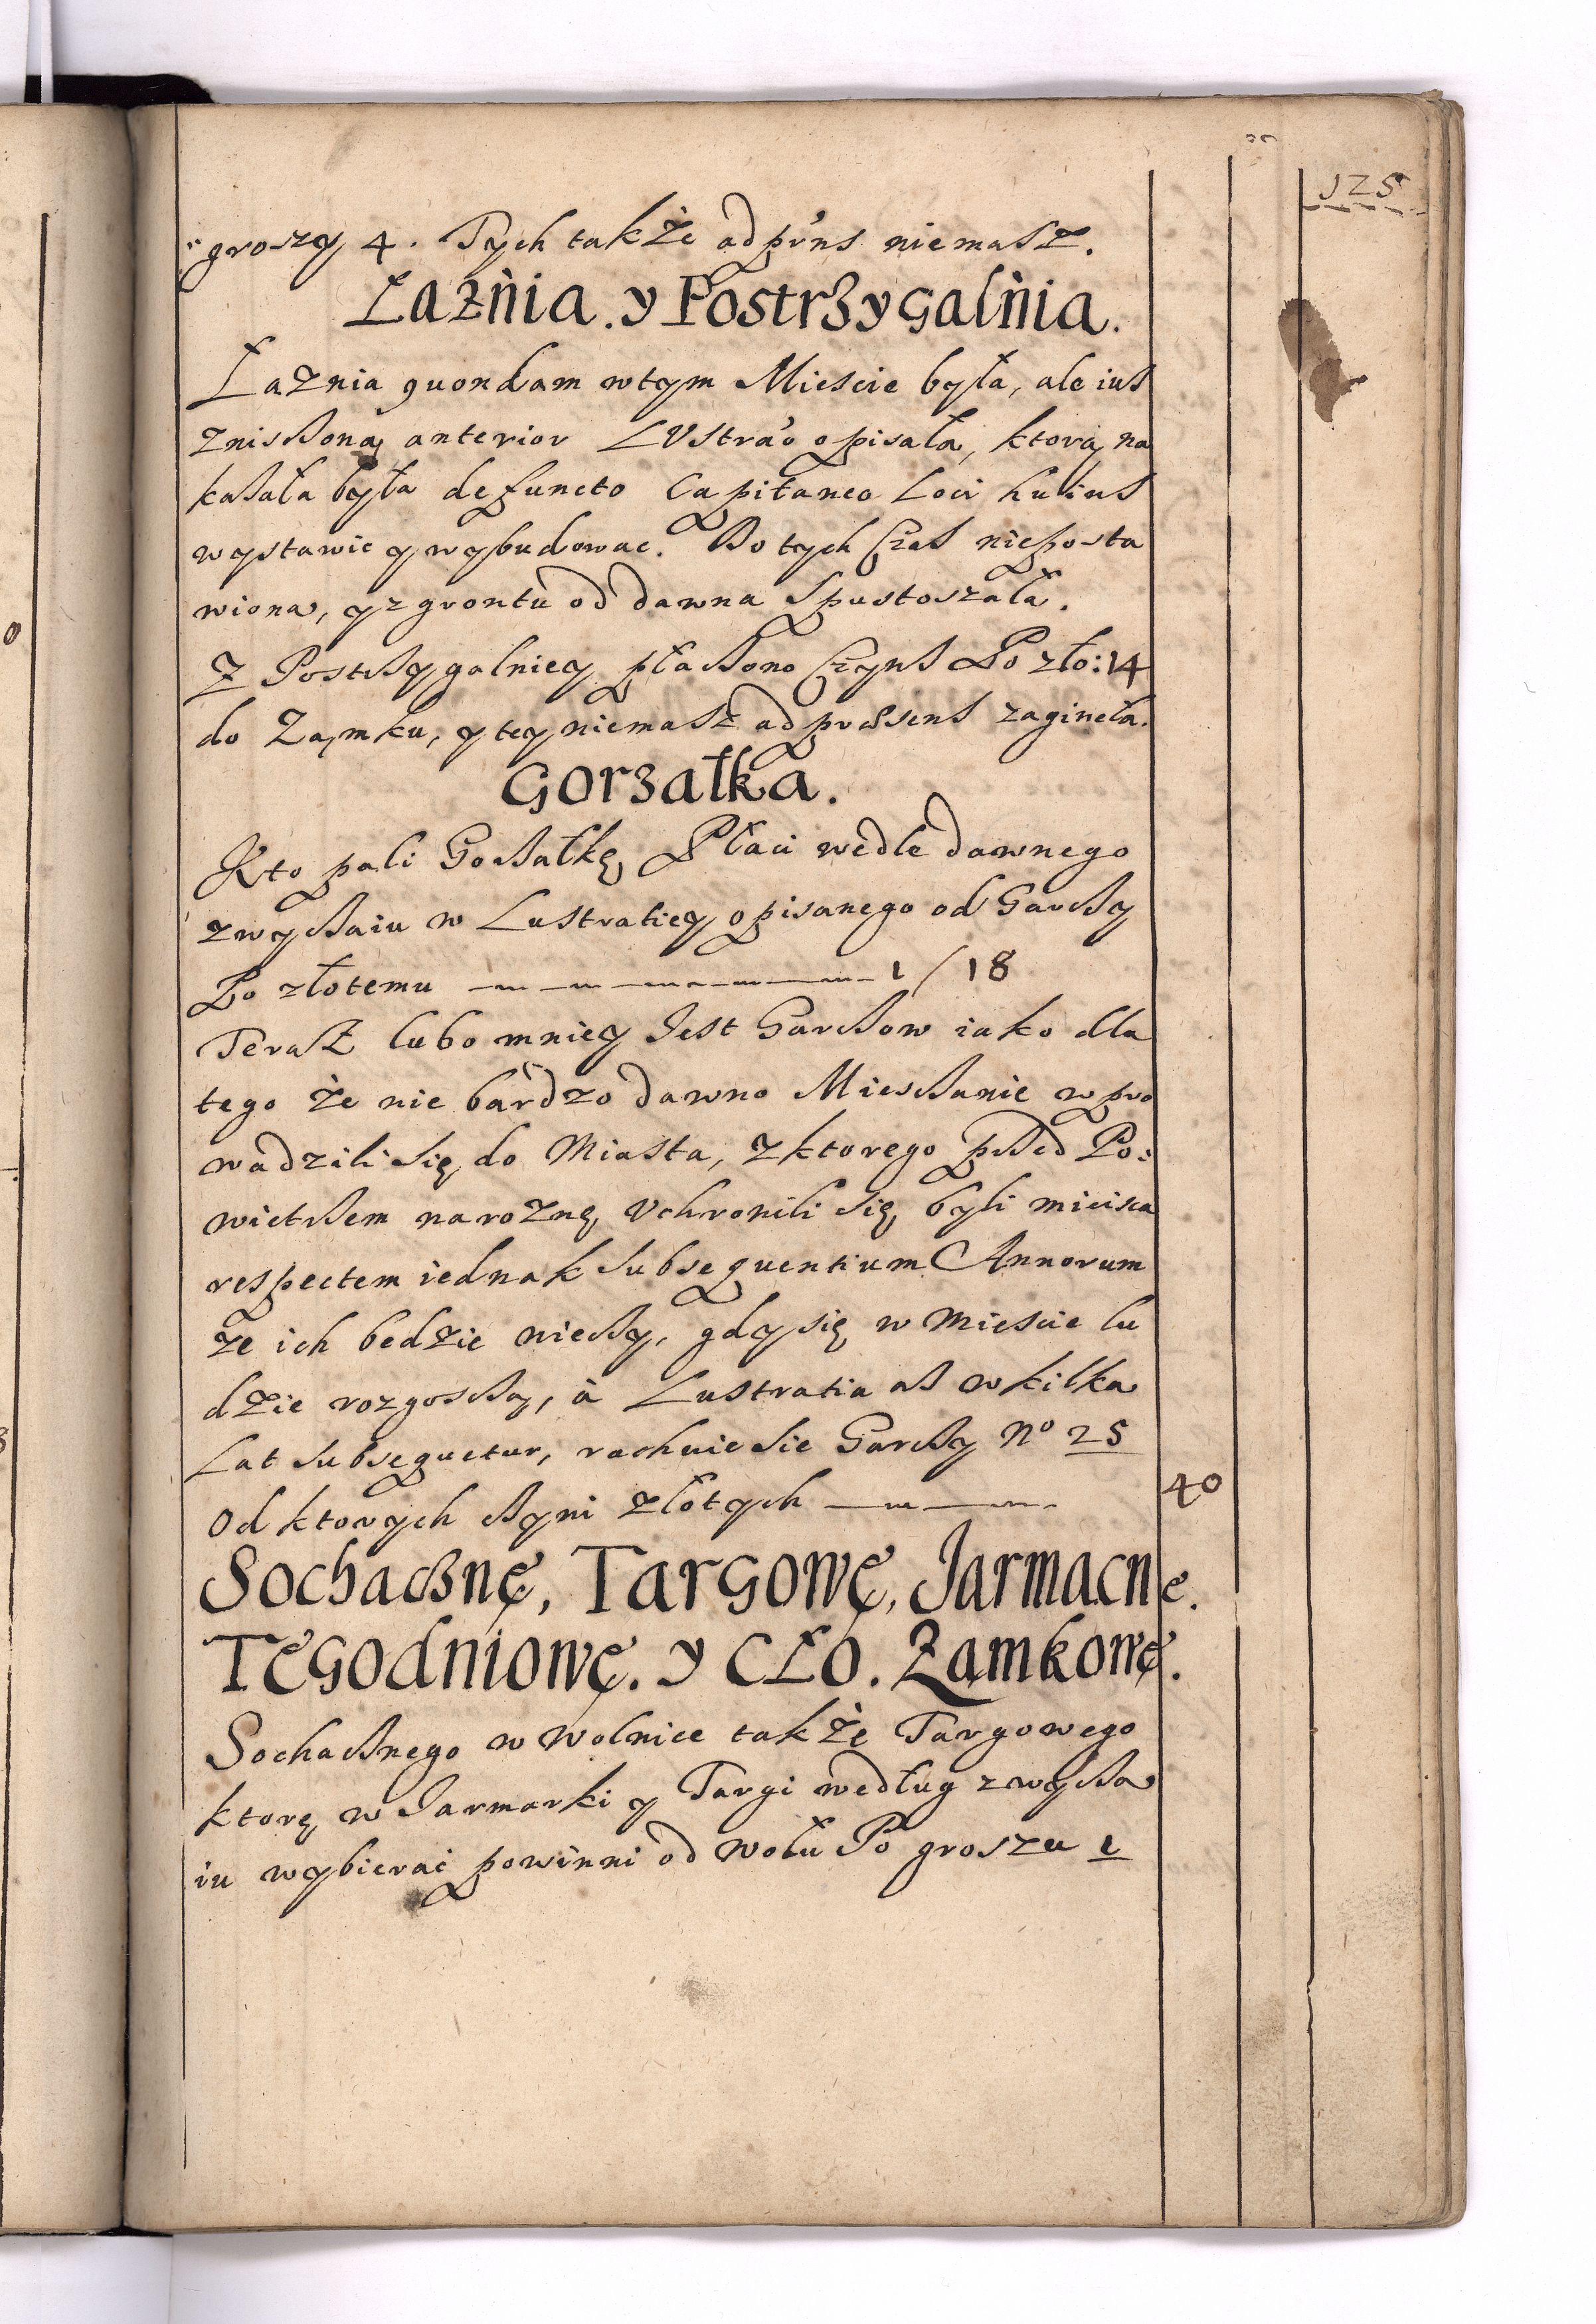 125
groszy 4. Tych także ad pr̃ns niemasz.
Łaźnia. y Postrzygalnia.
Łaznia quondam w tym Miescie była, ale ius
zniszoną anterior LVstrão opisała, ktorą na
kazała była defuncto Capitaneo Loci huius
wystawic y wybudowac. Do tych Czas nieposta
wiona, y z grontu od dawna Spustoszała.
Z Postrzygalniey płaczono Czyns Po zło: 14
do Zamku, y tey niemasz ad præsens zagineła.
Gorzałka.
Kto pali Gorzałkę Płaci wedle dawnego
zwyczaiu w Lustratiey opisanego od Garczy
Po złotemu 1/18
Teraz lubo mniey Jest Garczow iako dla
tego że nie bardzo dawno Mieszczanie wpro
wadzili się do Miasta, z ktorego przed Po:
wietrzem na rożnę Vchronili się byli mieisca
respectem iednak subsequentium Annorum
że ich bedzie wieczy, gdy się w Miescie lu
dzie rozgoszczą, à Lustratia as w kilka
Lat subsequetur, rachuie sie Garczy No 25
Od ktorych czyni złotych 40
Sochaczne, Targowe, Jarmacne.
Tegodniowe. y Cło. Zamkowe.
Sochacznego w Wolnice także Targowego
ktorę w Jarmarki y Targi według zwycza
iu wybierać powinni od Wołu Po groszu 1